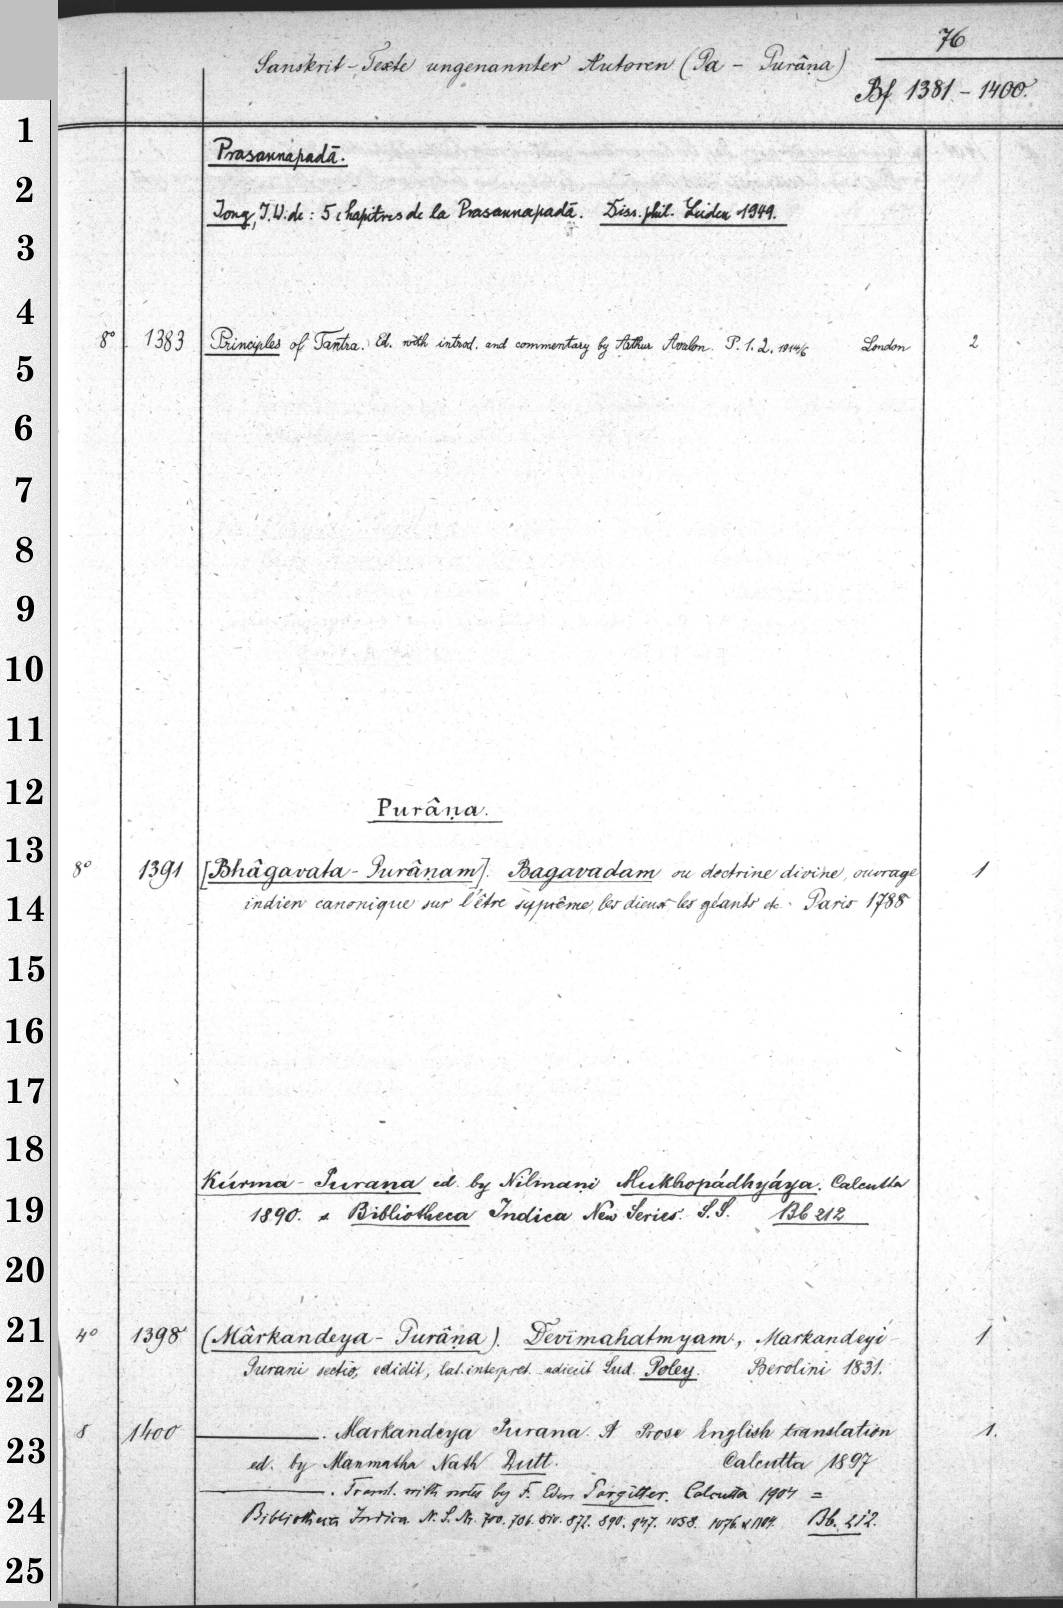 76
Sanskrit-Texte ungenannter Autoren (Pa - Purâṇa)
Bf 1381 - 1400.
1
Prasannapadā.
2
Jong, J.W. de: 5 chapitres de la Prasannapadā. Diss. phil. Leiden 1949.
3
4
8° 1383 Principles of Tantra. Ed. with introd. and commentary by Arthur Avalon. P. 1. 2. 1914/6 London 2
5
6
7
8
9
10
11
12
Purâṇa.
13
8° 1391 [Bhâgavata-Purâṇam]. Bagavadam ou doctrine divine, ouvrage 1
14
indien canonique sur l'être suprême, les dieux les géants etc. Paris 1788
15
16
17
18
Kúrma-Puraṇa ed. by Nilmaṇi Mukhopádhyáya. Calcutta
19
1890. Bibliotheca Indica New Series. Bb 212
20
21
4° 1398 (Mârkandeya-Purâṇa). Devīmahatmyam, Markandeyi 1
22
Purani sectio, edidit, lat. interpret. adiecit Lud. Poley. Berolini 1831.
8 1400 . Markandeya Purana. A Prose English translation 1.
23
ed. by Manmatha Nath Dutt. Calcutta 1897
. Transl. with notes by F. Eden Pargitter. Calcutta 1904 =
24
Bibliotheca Indica N. S. Nr. 700. 706. 810. 872. 890. 947. 1058. 1076. Bb. 212.
25